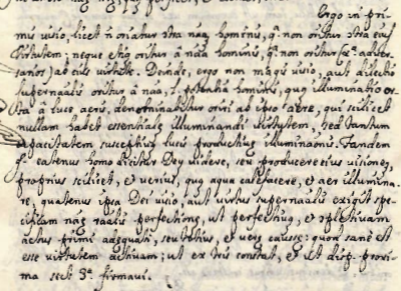 Ergo in pri-
mis visio, licet non oriatur extra naturam hominis, quia non oritur extra eius
virtutem: neque etiam oritur à natura hominis, quia non oritur
ad eius virtute. Deinde, ergo non magis visio, aut dilectio
supernaturalis oritur à natura, l. potentia hominis, quam illuminatio
à luce aeris, denominabitur oriri ab ipso aëre, qui scilicet
nullam habet essentialem illuminandi virtutem, sed tantum
capacitatem susceptivam lucis productivae illuminationis. Tandem
eatenus homo dicitur Deum videre, seu producere eius visionem,
proprius scilicet, et verius, quam aqua calefacere, et aer illumina-
re, quatenus ipsa Dei visio, aut virtus supernaturalis exigit spe-
cialem perfectionem, ut perfectivam, et completivam
actus primi adaequati, seu totius, et verae causae: quod sanè est
esse virtutem activam; ut ex dictis constat, et ut disp. proxi-
ma sect. 3ª firmavi.